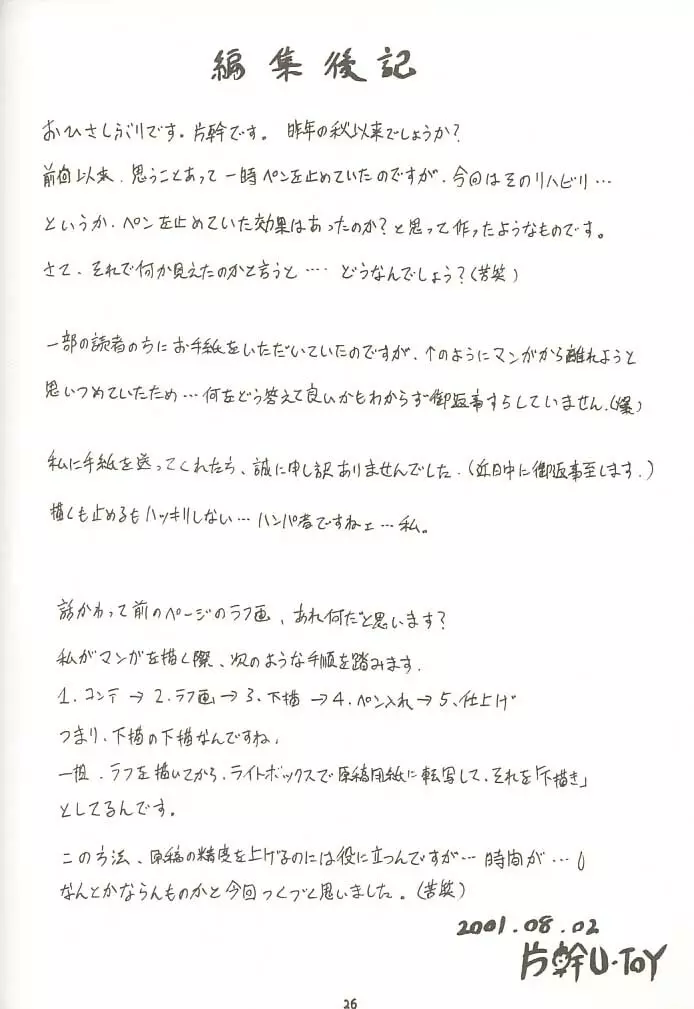 編集後記
おひさしぶりです。片幹です。 昨年の秋以来でしょうか?
前回以来、思うことあって一時ペンを止めていたのですが、今回はそのリハビリ…
というか、ペンを止めていた効果はあったのか?と思って作ったようなものです。
さて、それで何か見えたのかと言うと … どうなんでしょう?(苦笑)
一部の読者の方にお手紙をいただいていたのですが、↑のようにマンガから離れようと
思いつめていたため…何をどう答えて良いかもわからず御返事すらしていません。(爆)
私に手紙を送ってくれた方、誠に申し訳ありませんでした。(近日中に御返事至します。)
描くも止めるもハッキリしない…ハンパ者ですねェ…私。
話かわって前のページのラフ画、あれ何だと思います?
私がマンガを描く際、次のような手順を踏みます。
1.コンテ→2.ラフ画→3.下描→4.ペン入れ→5.仕上げ
つまり、下描の下描なんですね。
一担、ラフを描いてから、ライトボックスで原稿用紙に転写して、それを「下描き」
としてるんです。
この方法、原稿の精度を上げるのには役に立つんですが…時間が…
なんとかならんものかと今回つくづくと思いました。(苦笑)
2001.08.02
片幹U・ToY
26